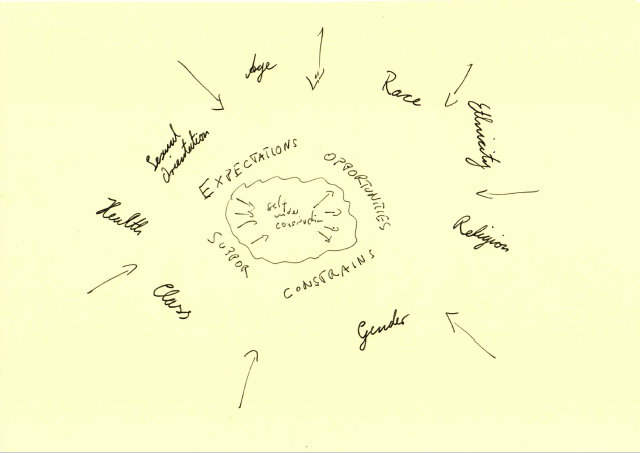 Age
Race
Ethnicity
Religion
Gender
Class
Health
Sexual
Orientation
EXPECTATIONS
OPPORTUNITIES
CONSTRAINS
SUPPOR
self
under
construction